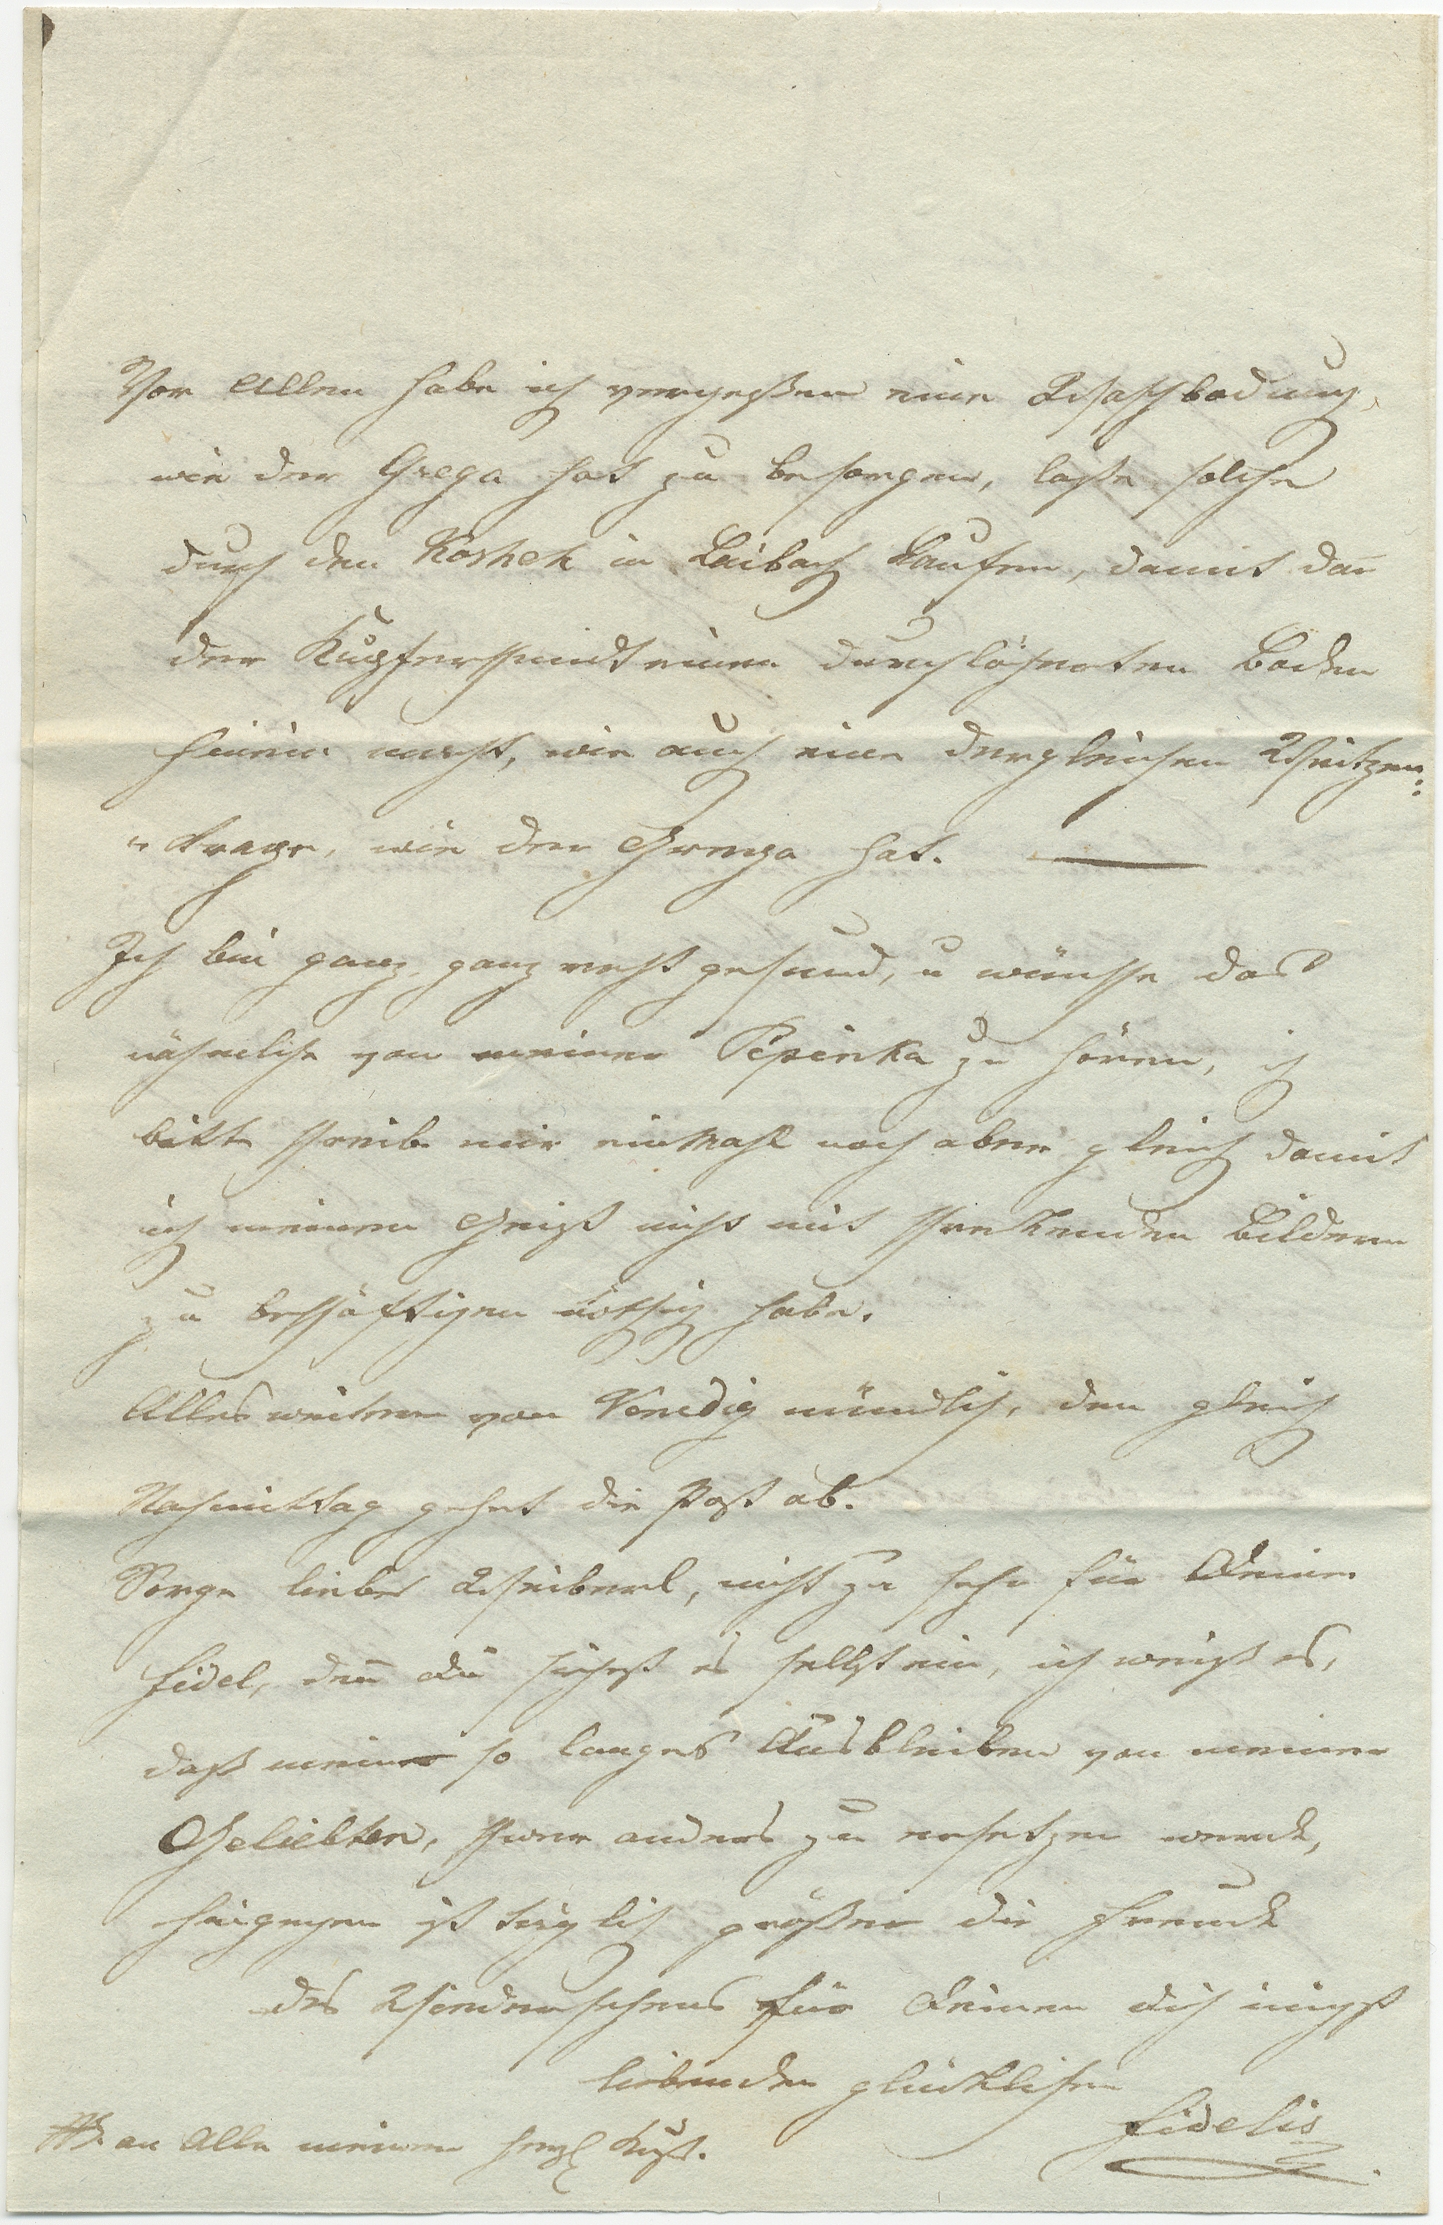 Vor Allen habe ich vergeßen eine Waschbodung,
wie der Grega hat zu besorgen, laße solche
durch den Koshek in Laibach kaufen, damit dan
der Kupferschmidt einen durchlöcherten Boden
hinein macht, wie auch eine dergleichen Weitzen-
"krage, wie der Grega hat. —
Ich bin ganz, ganz recht gesund, u wünsche das
nähmliche von meiner Pepinka zu hören, ich
bitte schreib mir einmahl noch aber gleich damit
ich meinen Geist nicht mit schrekenden Bildern
zu beschäftigen nöthig habe.
Alles weitere von Venedig mündlich, den gleich
Nachmittag gehet die Post ab.
Sorge liebes Weiberl, nicht zu sehr für Deinen
Fidel, den̄ du siehest es selbst ein, ich weiß es,
daß mein so langes Ausbleiben von meiner
Geliebten, schwer anders zu ersetzen werde,
hingegen ist täglich größer die Freude
des Wiedersehens für Deinen dich innigst
liebenden glücklichen
Fidelis
NB. an Alle meinen herzl Kuß.